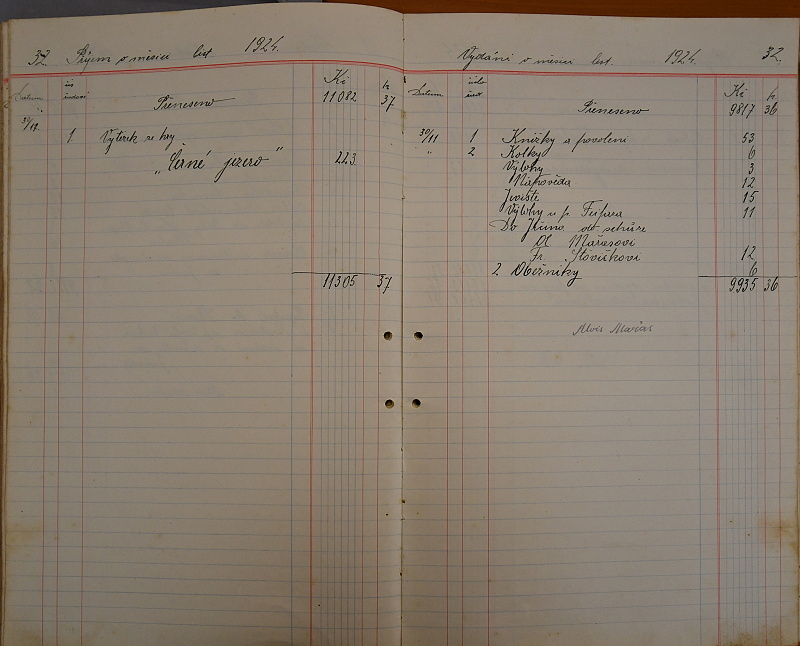 32. Příjem v měsíci list. 1924.
Datum čís. účtu Kč h
Přeneseno 11082 37
30/11. 1 Výtěžek ze hry
„Černé jezero" 223
11305 37
Vydání v měsíci list. 1924. 32.
Datum číslo účt Kč h
Přeneseno 9817 36
30/11 1 Knížky a povolení 53
" 2 Kolky 6
Výlohy 3
Nápověda 12
Jeviště 15
Výlohy u p. Fejfara 11
Do Jičína del. schůze
Al Mařasovi
Fr. Slovíčkovi 12
2 Oběžníky 6
9935 36
Alois Mařas